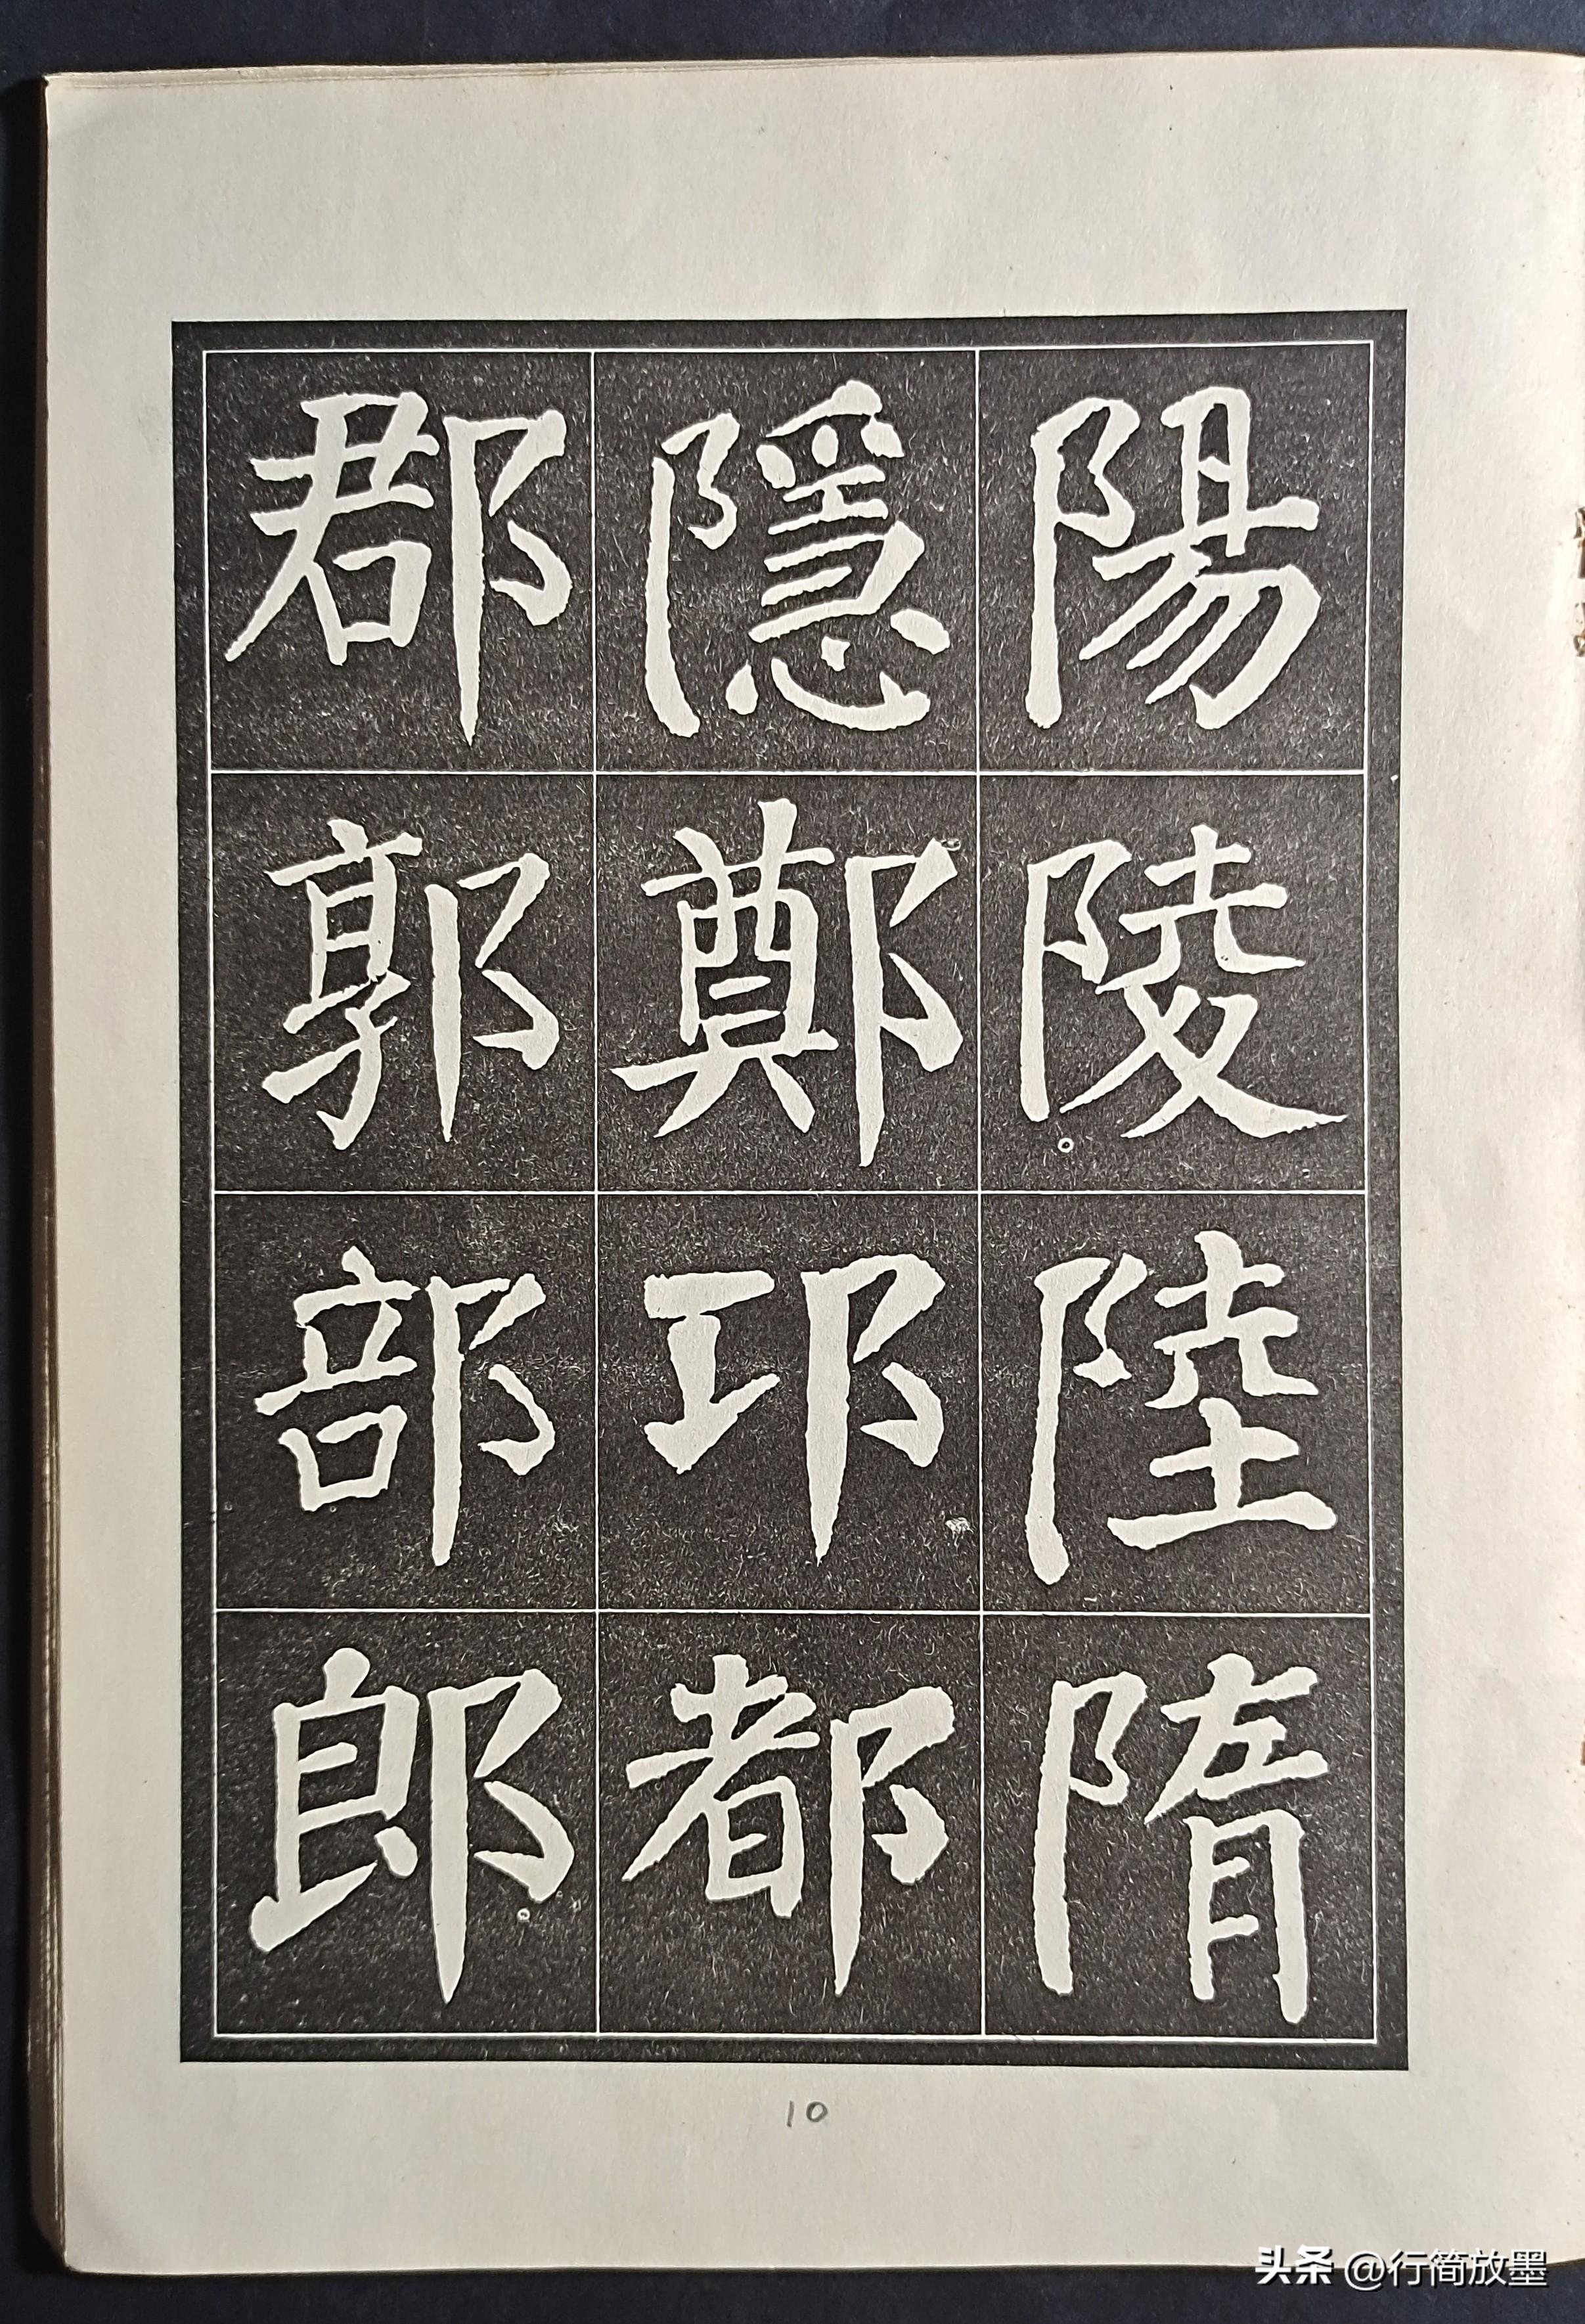 陽陵陸隋
隱鄭邛都
郡郭部郎
10
头条 @行简放墨